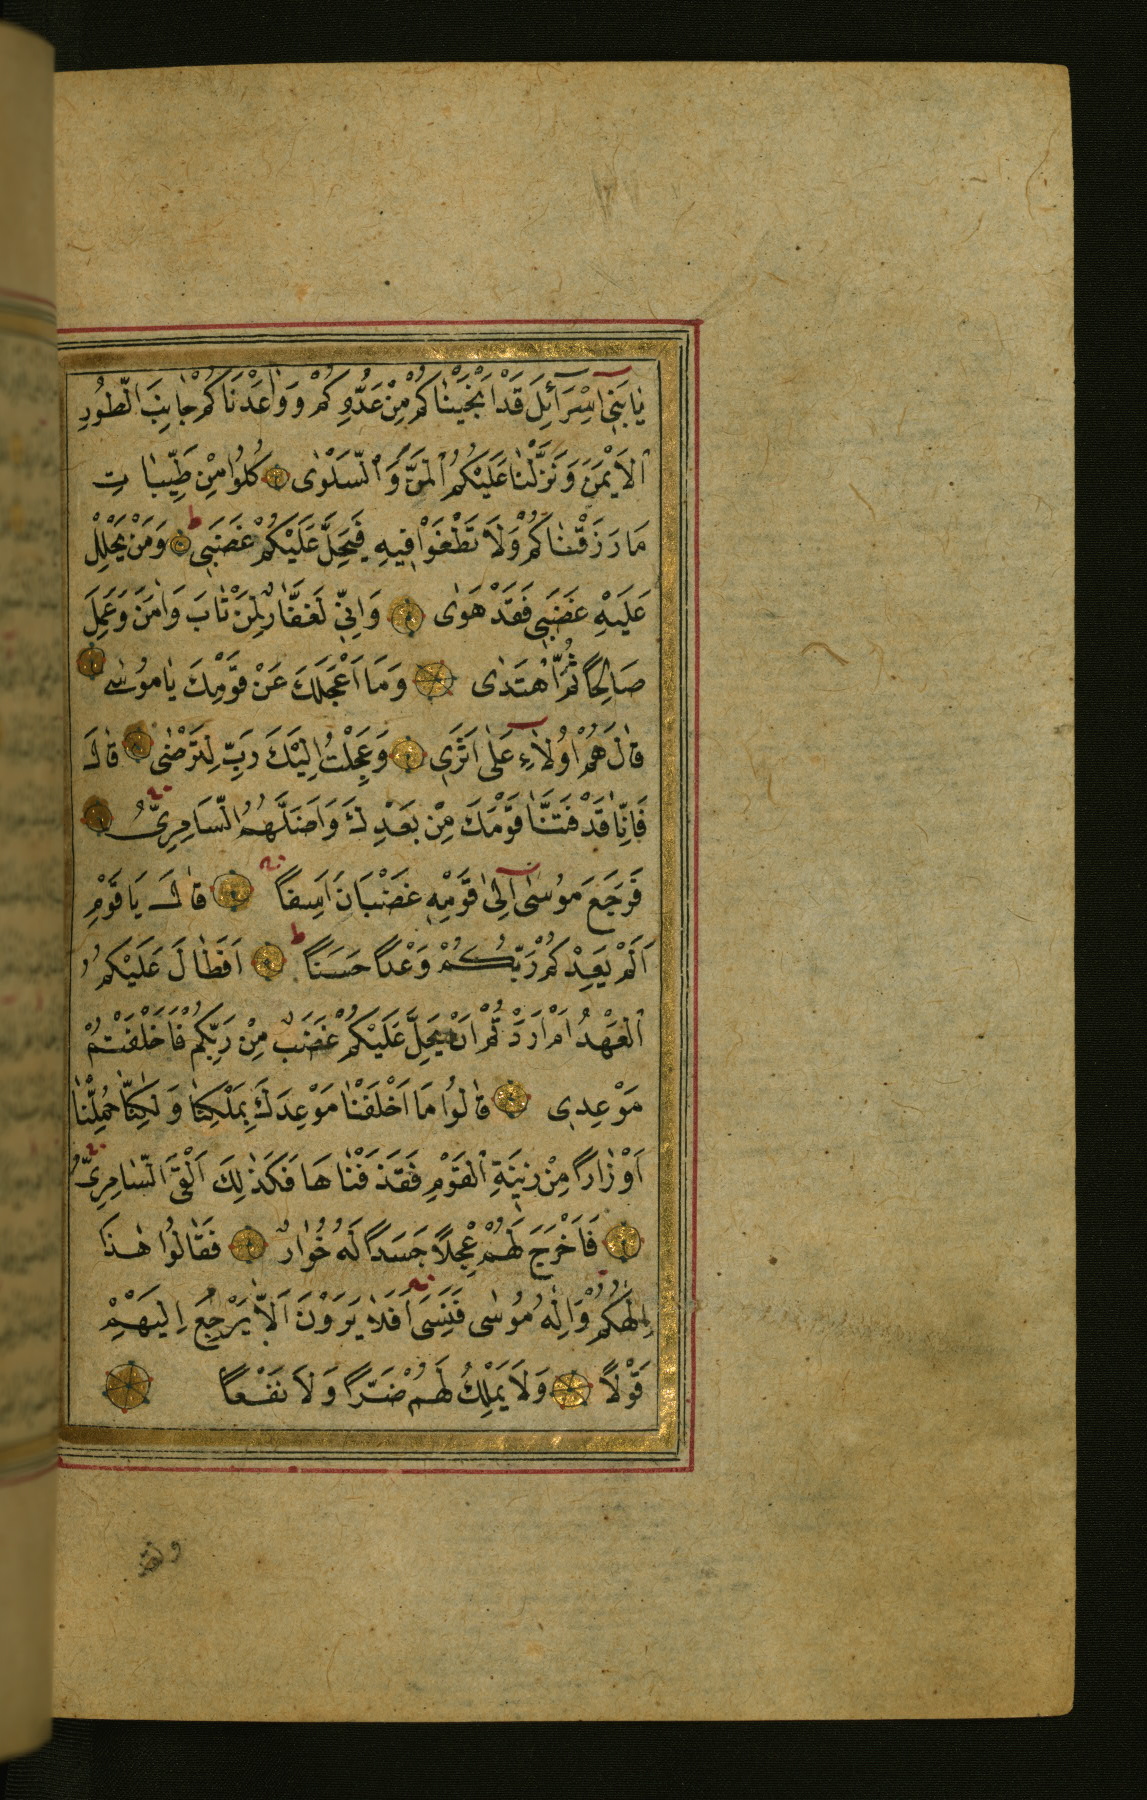 يَا بَنِٓي اِسْرَٓائِلَ قَدْ اَنْجَيْنَاكُمْ مِنْ عَدُوِّكُمْ وَوٰاعَدْنَاكُمْ جَانِبَ الطُّورِ
الْاَيْمَنَ وَنَزَّلْنَا عَلَيْكُمُ الْمَنَّ وَالسَّلْوٰى كُلُوا مِنْ طَيِّبَاتِ
مَا رَزَقْنَاكُمْ وَلَا تَطْغَوْا فِيهِ فَيَحِلَّ عَلَيْكُمْ غَضَبِي ط وَمَنْ يَحْلِلْ
عَلَيْهِ غَضَبِي فَقَدْ هَوٰى وَاِنِّي لَغَفَّارٌ لِمَنْ تَابَ وَاٰمَنَ وَعَمِلَ
صَالِحًا ثُمَّ اهْتَدٰى وَمَا اَعْجَلَكَ عَنْ قَوْمِكَ يَا مُوسٰى
قَالَ هُمْ اُولَٓاءِ عَلٰٓى اَثَرِي وَعَجِلْتُ اِلَيْكَ رَبِّ لِتَرْضٰى قَالَ
فَاِنَّا قَدْ فَتَنَّا قَوْمَكَ مِنْ بَعْدِكَ وَاَضَلَّهُمُ السَّامِرِيُّ
فَرَجَعَ مُوسٰٓى اِلٰى قَوْمِهِ غَضْبَانَ اَسِفًا قَالَ يَا قَوْمِ
اَلَمْ يَعِدْكُمْ رَبُّكُمْ وَعْدًا حَسَنًا ط اَفَطَالَ عَلَيْكُمُ
الْعَهْدُ اَمْ اَرَدْتُمْ اَنْ يَحِلَّ عَلَيْكُمْ غَضَبٌ مِنْ رَبِّكُمْ فَاَخْلَفْتُمْ
مَوْعِدِي قَالُوا مَا اَخْلَفْنَا مَوْعِدَكَ بِمَلْكِنَا وَلٰكِنَّا حُمِّلْنَا
اَوْزَارًا مِنْ زِينَةِ الْقَوْمِ فَقَذَفْنَاهَا فَكَذٰلِكَ اَلْقَى السَّامِرِيُّ
فَاَخْرَجَ لَهُمْ عِجْلًا جَسَدًا لَهُ خُوَارٌ فَقَالُوا هٰذَا
اِلٰهُكُمْ وَاِلٰهُ مُوسٰى فَنَسِيَ اَفَلَا يَرَوْنَ اَلَّا يَرْجِعُ اِلَيْهِمْ
قَوْلًا وَلَا يَمْلِكُ لَهُمْ ضَرًّا وَلَا نَفْعًا